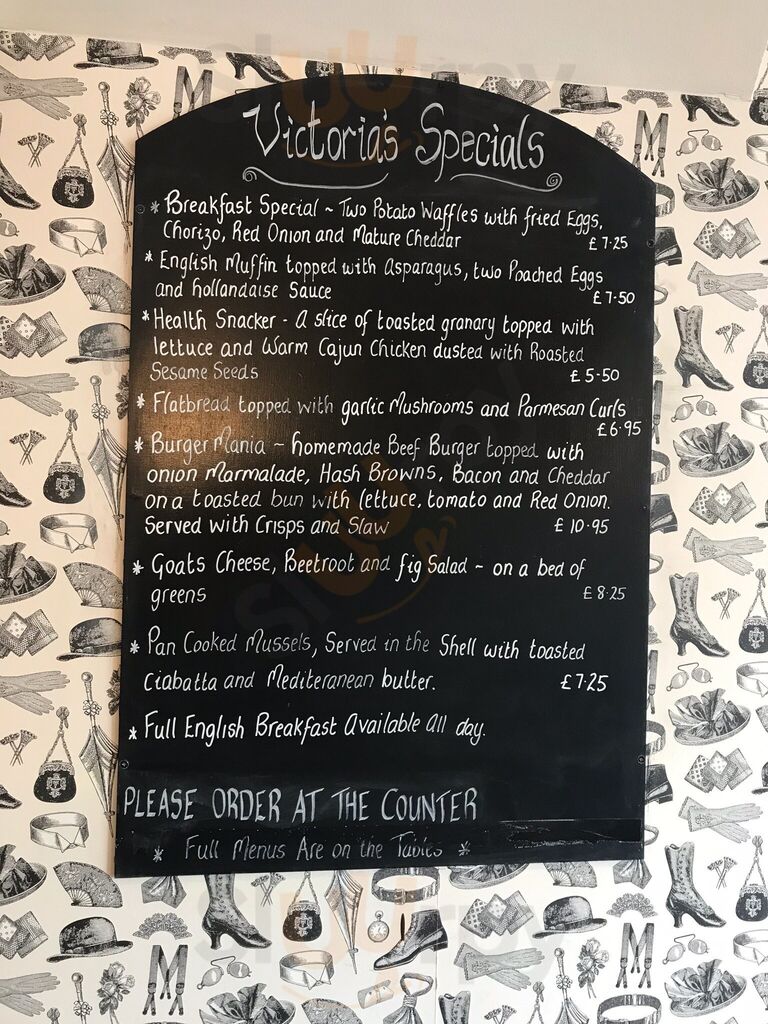 Victoria's Specials
* Breakfast Special ~ Two Potato Waffles with fried Eggs,
Chorizo, Red Onion and Mature Cheddar £7.25
* English Muffin topped with Asparagus, two Poached Eggs
and hollandaise Sauce £7.50
* Health Snacker - A slice of toasted granary topped with
lettuce and Warm Cajun Chicken dusted with Roasted
Sesame Seeds £5-50
* Flatbread topped with garlic Mushrooms and Parmesan Curls
£6.95
* Burger Mania ~ homemade Beef Burger topped with
onion Marmalade, Hash Browns, Bacon and Cheddar
on a toasted bun with lettuce, tomato and Red Onion.
Served with Crisps and Slaw £10.95
* Goats Cheese, Beetroot and fig Salad ~ on a bed of
greens £8.25
* Pan Cooked Mussels, Served in the Shell with toasted
Ciabatta and Mediteranean butter. £7.25
* Full English Breakfast Available All day.
PLEASE ORDER AT THE COUNTER
* Full Menus Are on the Tables *
sluurpy
sluurpy
sluurpy